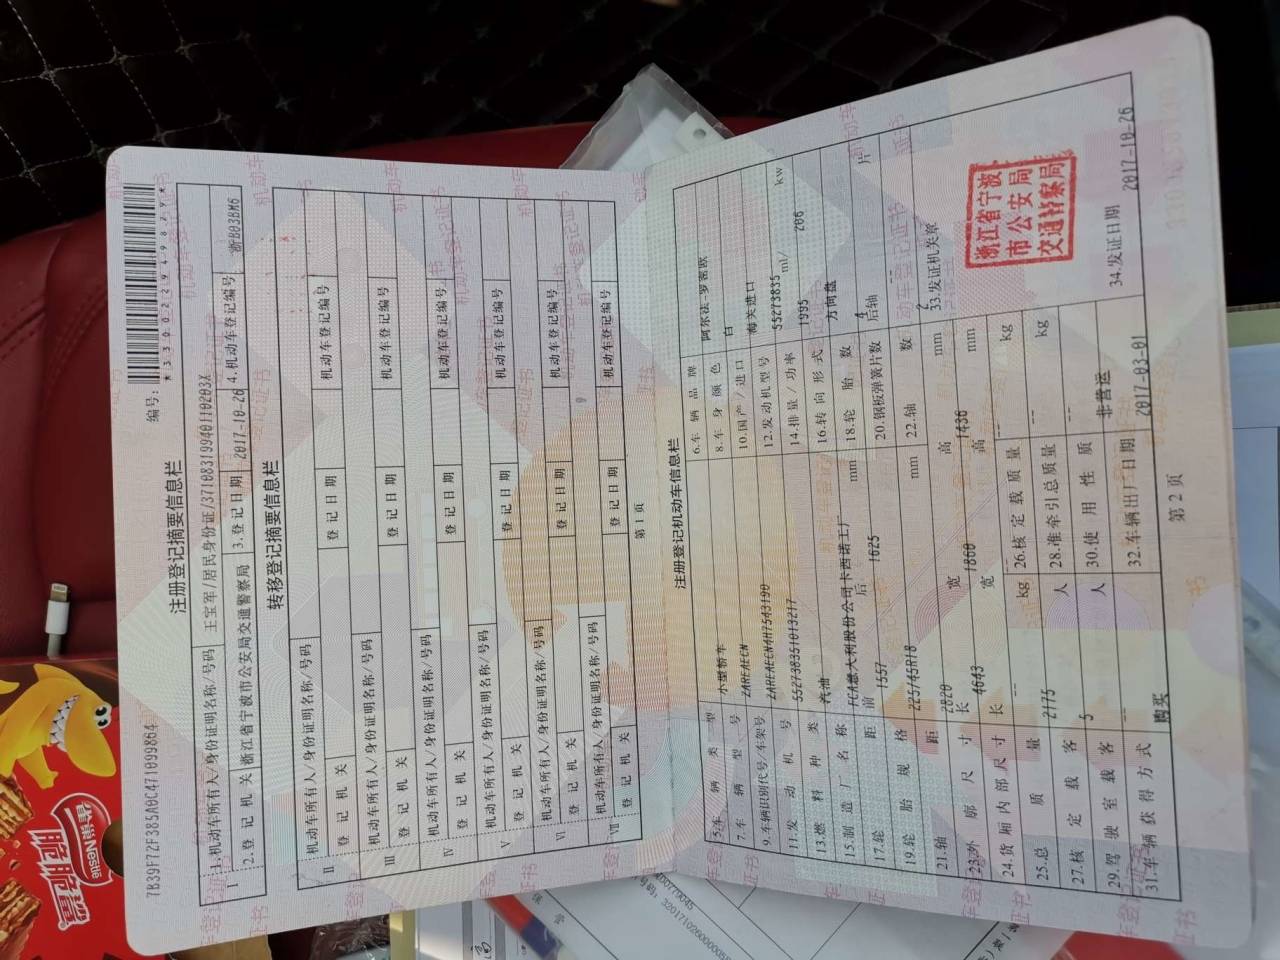 编号:
*330022949829*
7B39F72F385A0C471099864
注册登记摘要信息栏
Ⅰ
1.机动车所有人/身份证明名称/号码 王宝军/居民身份证/37108319940110203X
2.登记机关 浙江省宁波市公安局交通警察局 3.登记日期 2017-10-26 4.机动车登记编号 浙B03BM6
转移登记摘要信息栏
Ⅱ
机动车所有人/身份证明名称/号码
登记机关 登记日期 机动车登记编号
Ⅲ
机动车所有人/身份证明名称/号码
登记机关 登记日期 机动车登记编号
Ⅳ
机动车所有人/身份证明名称/号码
登记机关 登记日期 机动车登记编号
Ⅴ
机动车所有人/身份证明名称/号码
登记机关 登记日期 机动车登记编号
Ⅵ
机动车所有人/身份证明名称/号码
登记机关 登记日期 机动车登记编号
Ⅶ
机动车所有人/身份证明名称/号码
登记机关 登记日期 机动车登记编号
第1页
注册登记机动车信息栏
5.车辆类型 小型轿车 6.车辆品牌 阿尔法-罗密欧
7.车辆型号 ZAREAECN 8.车身颜色 白
9.车辆识别代号/车架号 ZAREAECN4H7543190 10.国产/进口 海关进口
11.发动机号 552738351013217 12.发动机型号 55273835
13.燃料种类 汽油 14.排量/功率 1995 ml/ 206 kw
15.制造厂名称 FCA意大利股份公司卡西诺工厂 16.转向形式 方向盘
17.轮距 前 1557 后 1625 mm 18.轮胎数 4
19.轮胎规格 225/45R18 20.钢板弹簧片数 后轴 -- 片
21.轴距 2820 mm 22.轴数 2
23.外廓尺寸 长 4643 宽 1860 高 1436 mm
24.货厢内部尺寸 长 -- 宽 -- 高 -- mm
25.总质量 2175 kg 26.核定载质量 -- kg
27.核定载客 5 人 28.准牵引总质量 -- kg
29.驾驶室载客 -- 人 30.使用性质 非营运
31.车辆获得方式 购买 32.车辆出厂日期 2017-03-01
33.发证机关章
浙江省宁波
市公安局
交通警察局
34.发证日期 2017-10-26
第2页
雀巢Nestle
脆脆鲨